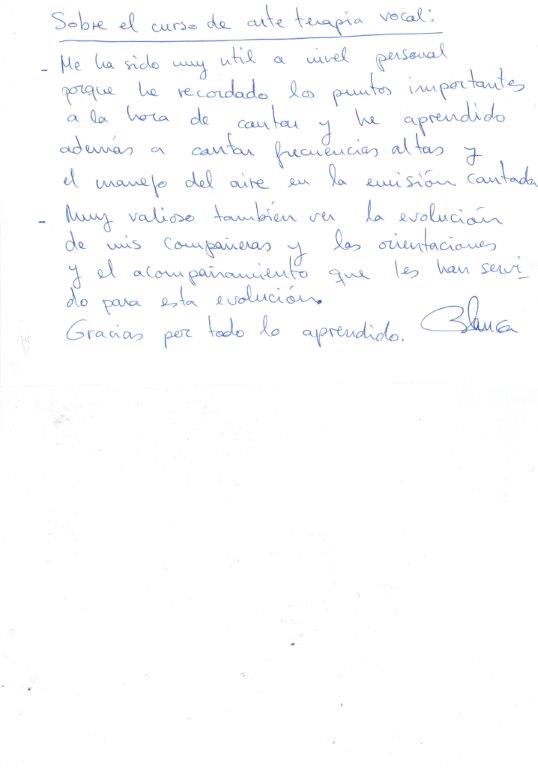 Sobre el curso de arte terapia vocal:
- Me ha sido muy util a nivel personal
porque he recordado los puntos importantes
a la hora de cantar y he aprendido
además a cantar frecuencias altas y
el manejo del aire en la emisión cantada
- Muy valioso también ver la evolución
de mis compañeras y las orientaciones
y el acompañamiento que les han servi-
do para esta evolución.
Gracias por todo lo aprendido. Blanca